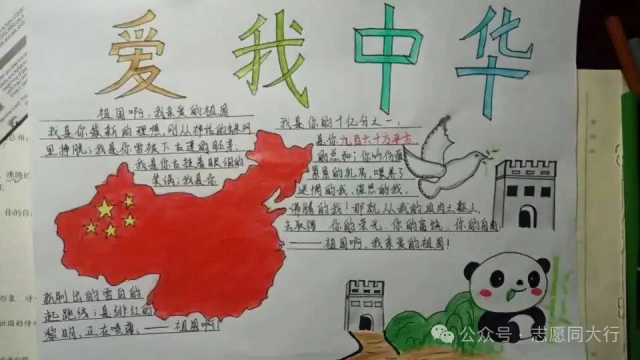 爱我中华
祖国啊，我亲爱的祖国
我是你簇新的理想，刚从神话的蛛网
里挣脱；我是你雪被下古莲的胚芽，
我是你挂着眼泪的
笑涡；我是你
新刷出的雪白的
起跑线；是绯红的
黎明，正在喷薄，——祖国啊！
我是你的十亿分之一，
是你九百六十万平方
的总和；你以伤痕
累累的乳房，喂养了
迷惘的我，深思的我，
沸腾的我！那就从我的血肉之躯上，
去取得 你的荣光，你的富饶，你的自由
——祖国啊，我亲爱的祖国！
公众号·志愿同大行